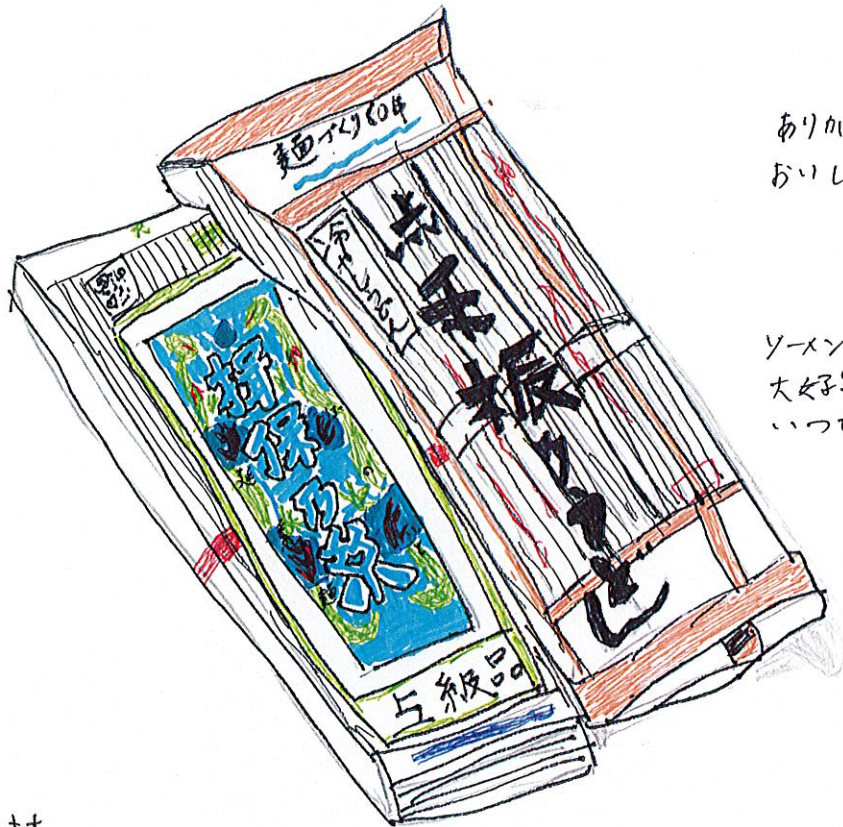 麺づくり80年
冷やしうどん
手振りうどん
揖保乃糸
上級品
ありが
おいし
ソーメン
大好き
いつで